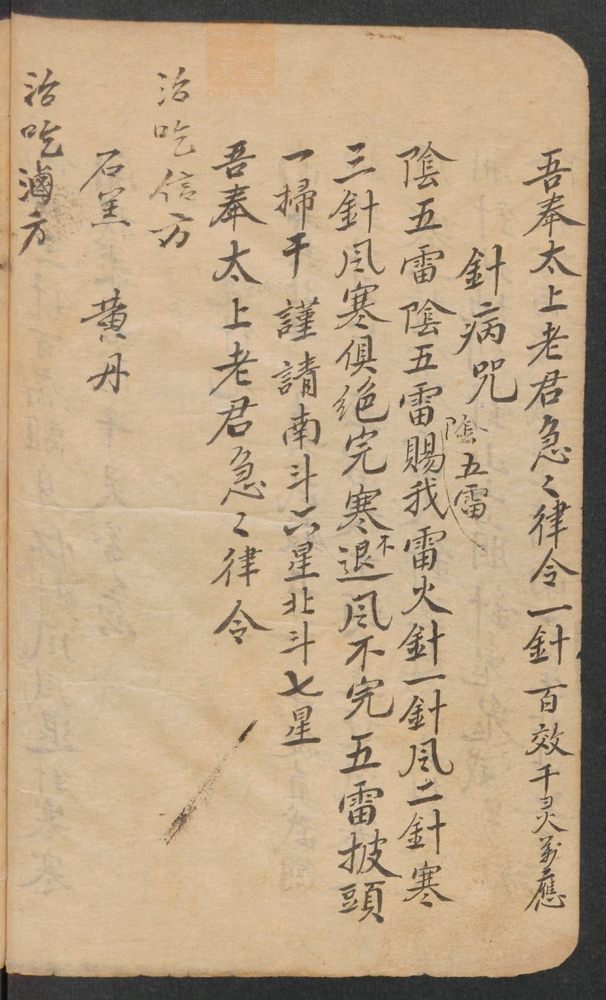 吾奉太上老君急〻律令一針百效千灵萬應
針病咒
陰五雷
陰五雷陰五雷賜我雷火針一針風二針寒
三針風寒俱絕完寒不退風不完五雷披頭
一掃干謹請南斗六星北斗七星
吾奉太上老君急〻律令
治吃信方
石羔 黄丹
治吃滷方